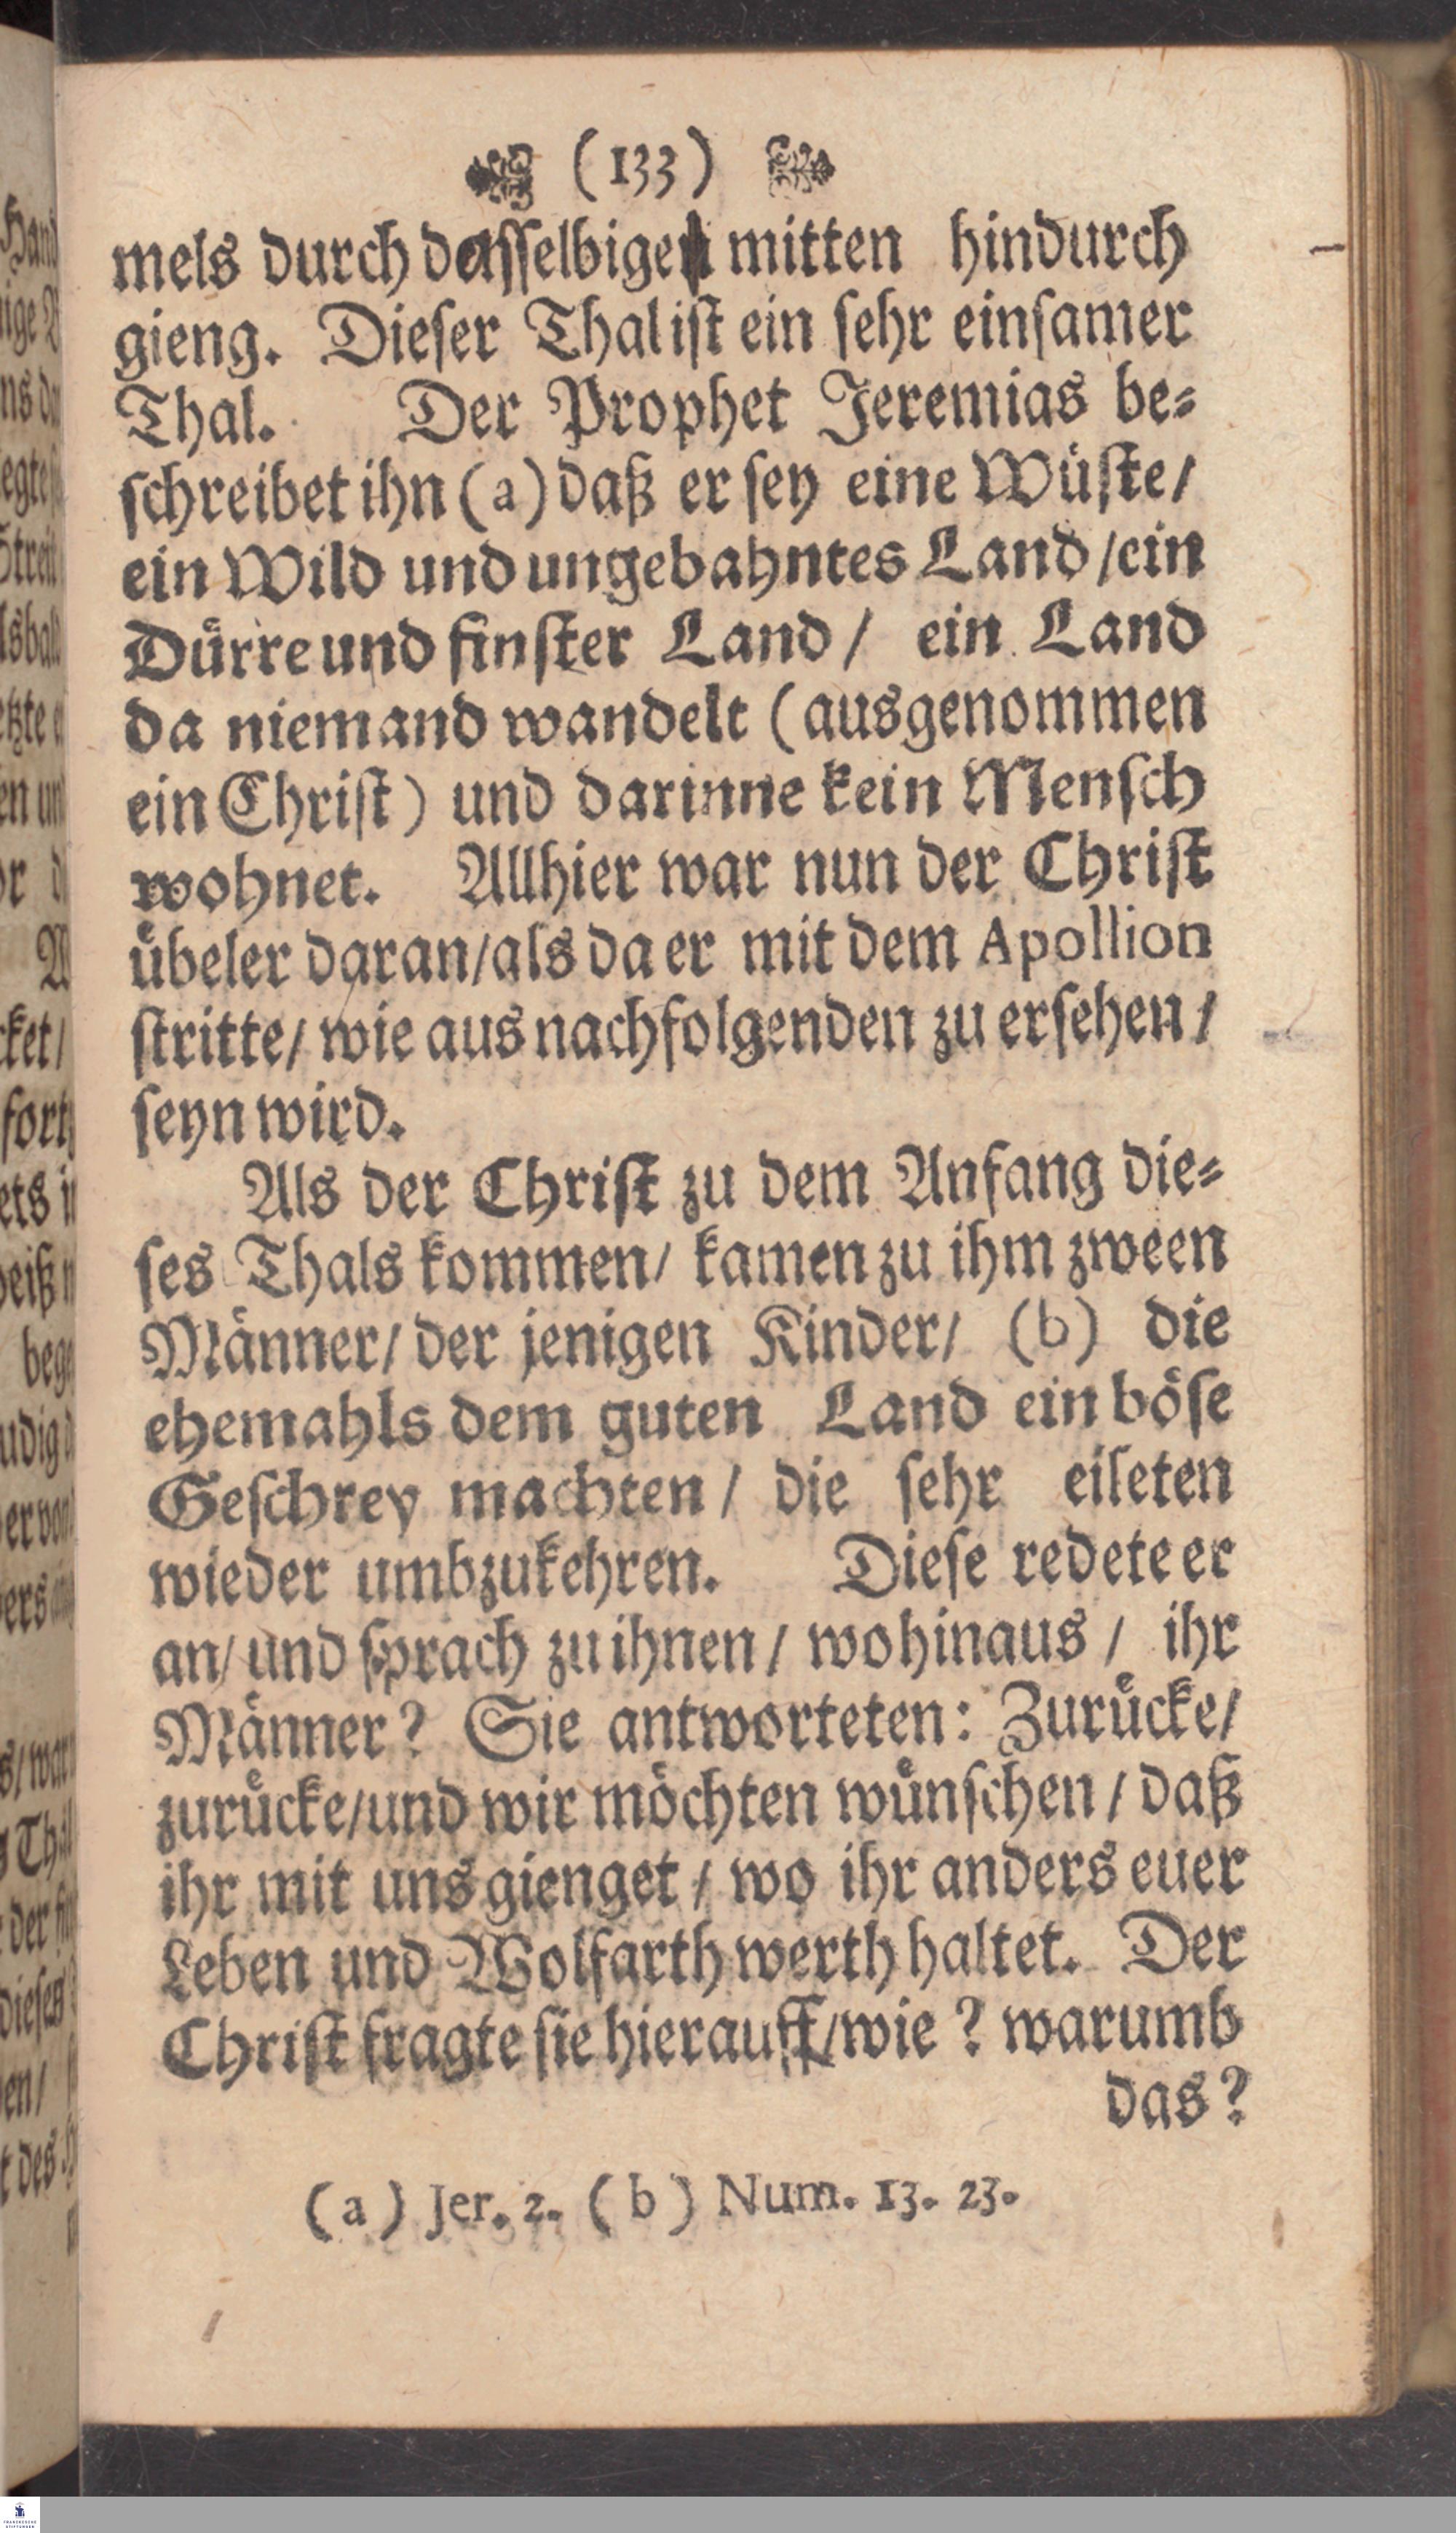 (133)
mels durch dasselbige mitten hindurch
gieng. Dieser Thal ist ein sehr einsamer
Thal. Der Prophet Jeremias be⸗
schreibet ihn (a) daß er sey eine Wüste/
ein Wild und ungebahntes Land/ein
Dürre und finster Land/ ein Land
da niemand wandelt (ausgenommen
ein Christ) und darinne kein Mensch
wohnet. Allhier war nun der Christ
übeler daran/als da er mit dem Apollion
stritte/ wie aus nachfolgenden zu ersehen/
seyn wird.
Als der Christ zu dem Anfang die⸗
ses Thals kommen/ kamen zu ihm zween
Männer/ der jenigen Kinder/ (b) die
ehemahls dem guten Land ein böse
Geschrey machten/ die sehr eileten
wieder umbzukehren. Diese redete er
an/ und sprach zu ihnen/ wohinaus/ ihr
Männer? Sie antworteten: Zurücke/
zurücke/und wir möchten wünschen/ daß
ihr mit uns gienget/ wo ihr anders euer
Leben und Wolfarth werth haltet. Der
Christ fragte sie hierauff/wie? warumb
das?
(a) Jer. 2. (b) Num. 13. 23.